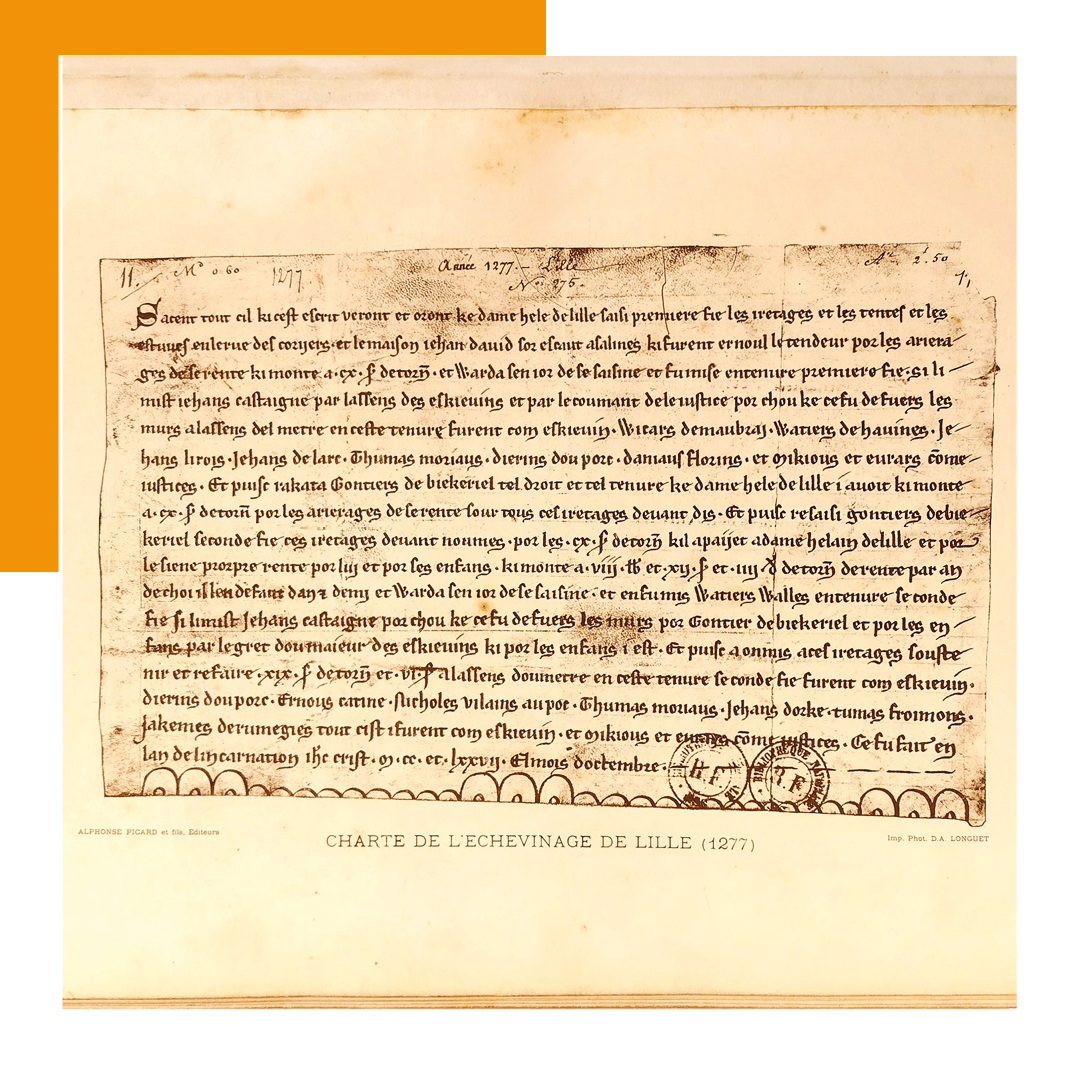 11. M° 0.60 1277 Année 1277.— Lille A^r 2.50
N° 276.
Sacent tout cil ki cest escrit veront et oront ke dame hele de lille saisi premiere fie les iretages et les tentes et les
estuves en le rue des coriiers · et le maison iehan david sor escaut as salines ki furent ernoul le tendeur por les ariera-
ges de se rente ki monte · a · cx · ſ de torn̄ · et Warda sen ior de se saisine et fu mise en tenure premiere fie · si li
mist iehans castaigne par lassens des eskievins et par le coumant de le iustice por chou ke ce fu defuers les
murs a lassens del metre en ceste tenure furent com eskievin · Wicars de maubrai · Watiers de havines · Je-
hans li rois · Jehans de larc · Thumas moriaus · diering dou porc · daniaus floring · et mikious et evrars cōme
iustices · Et puise rakata Gontiers de biekeriel tel droit et tel tenure ke dame hele de lille i avoit ki monte
a · cx · ſ de torn̄ por les arierages de se rente sour tous ces iretages devant dis · Et puise resaisi gontiers de bie-
keriel seconde fie ces iretages devant noumes · por les · cx · ſ de torn̄ kil a paiiet a dame helain de lille et por
le siene prorpre rente por lui et por ses enfans · ki monte · a · viij · lb et · xij · ſ et · iiij · d de torn̄ de rente par an
de choi il len defaut dan ⁊ demi et Warda sen ior de se saisine · et en fu mis Watiers Walles en tenure seconde
fie si li mist Jehans castaigne por chou ke ce fu defuers les murs por Gontier de biekeriel et por les en-
fans par le gret dou maieur des eskievins ki por les enfans i est · Et puise a on mis a ces iretages souste-
nir et refaire · xix · ſ de torn̄ et · vi · a lassens dou metre en ceste tenure seconde fie furent com eskievin ·
diering dou porc · Ernous catine · Nicholes vilains au poc · Thumas moriaus · Jehans dorke · tumas froimons ·
Jakemes de rumegies tout cist i furent com eskievin · et mikious et evrars cōme iustices · Ce fu fait en
lan de lincarnation ihc crist · m · cc · et · lxxvij · El mois doctembre ·
B.F BIBLIOTHÈQUE R.F
ALPHONSE PICARD et fils, Éditeurs
CHARTE DE L'ECHEVINAGE DE LILLE (1277)
Imp. Phot. D.A. LONGUET